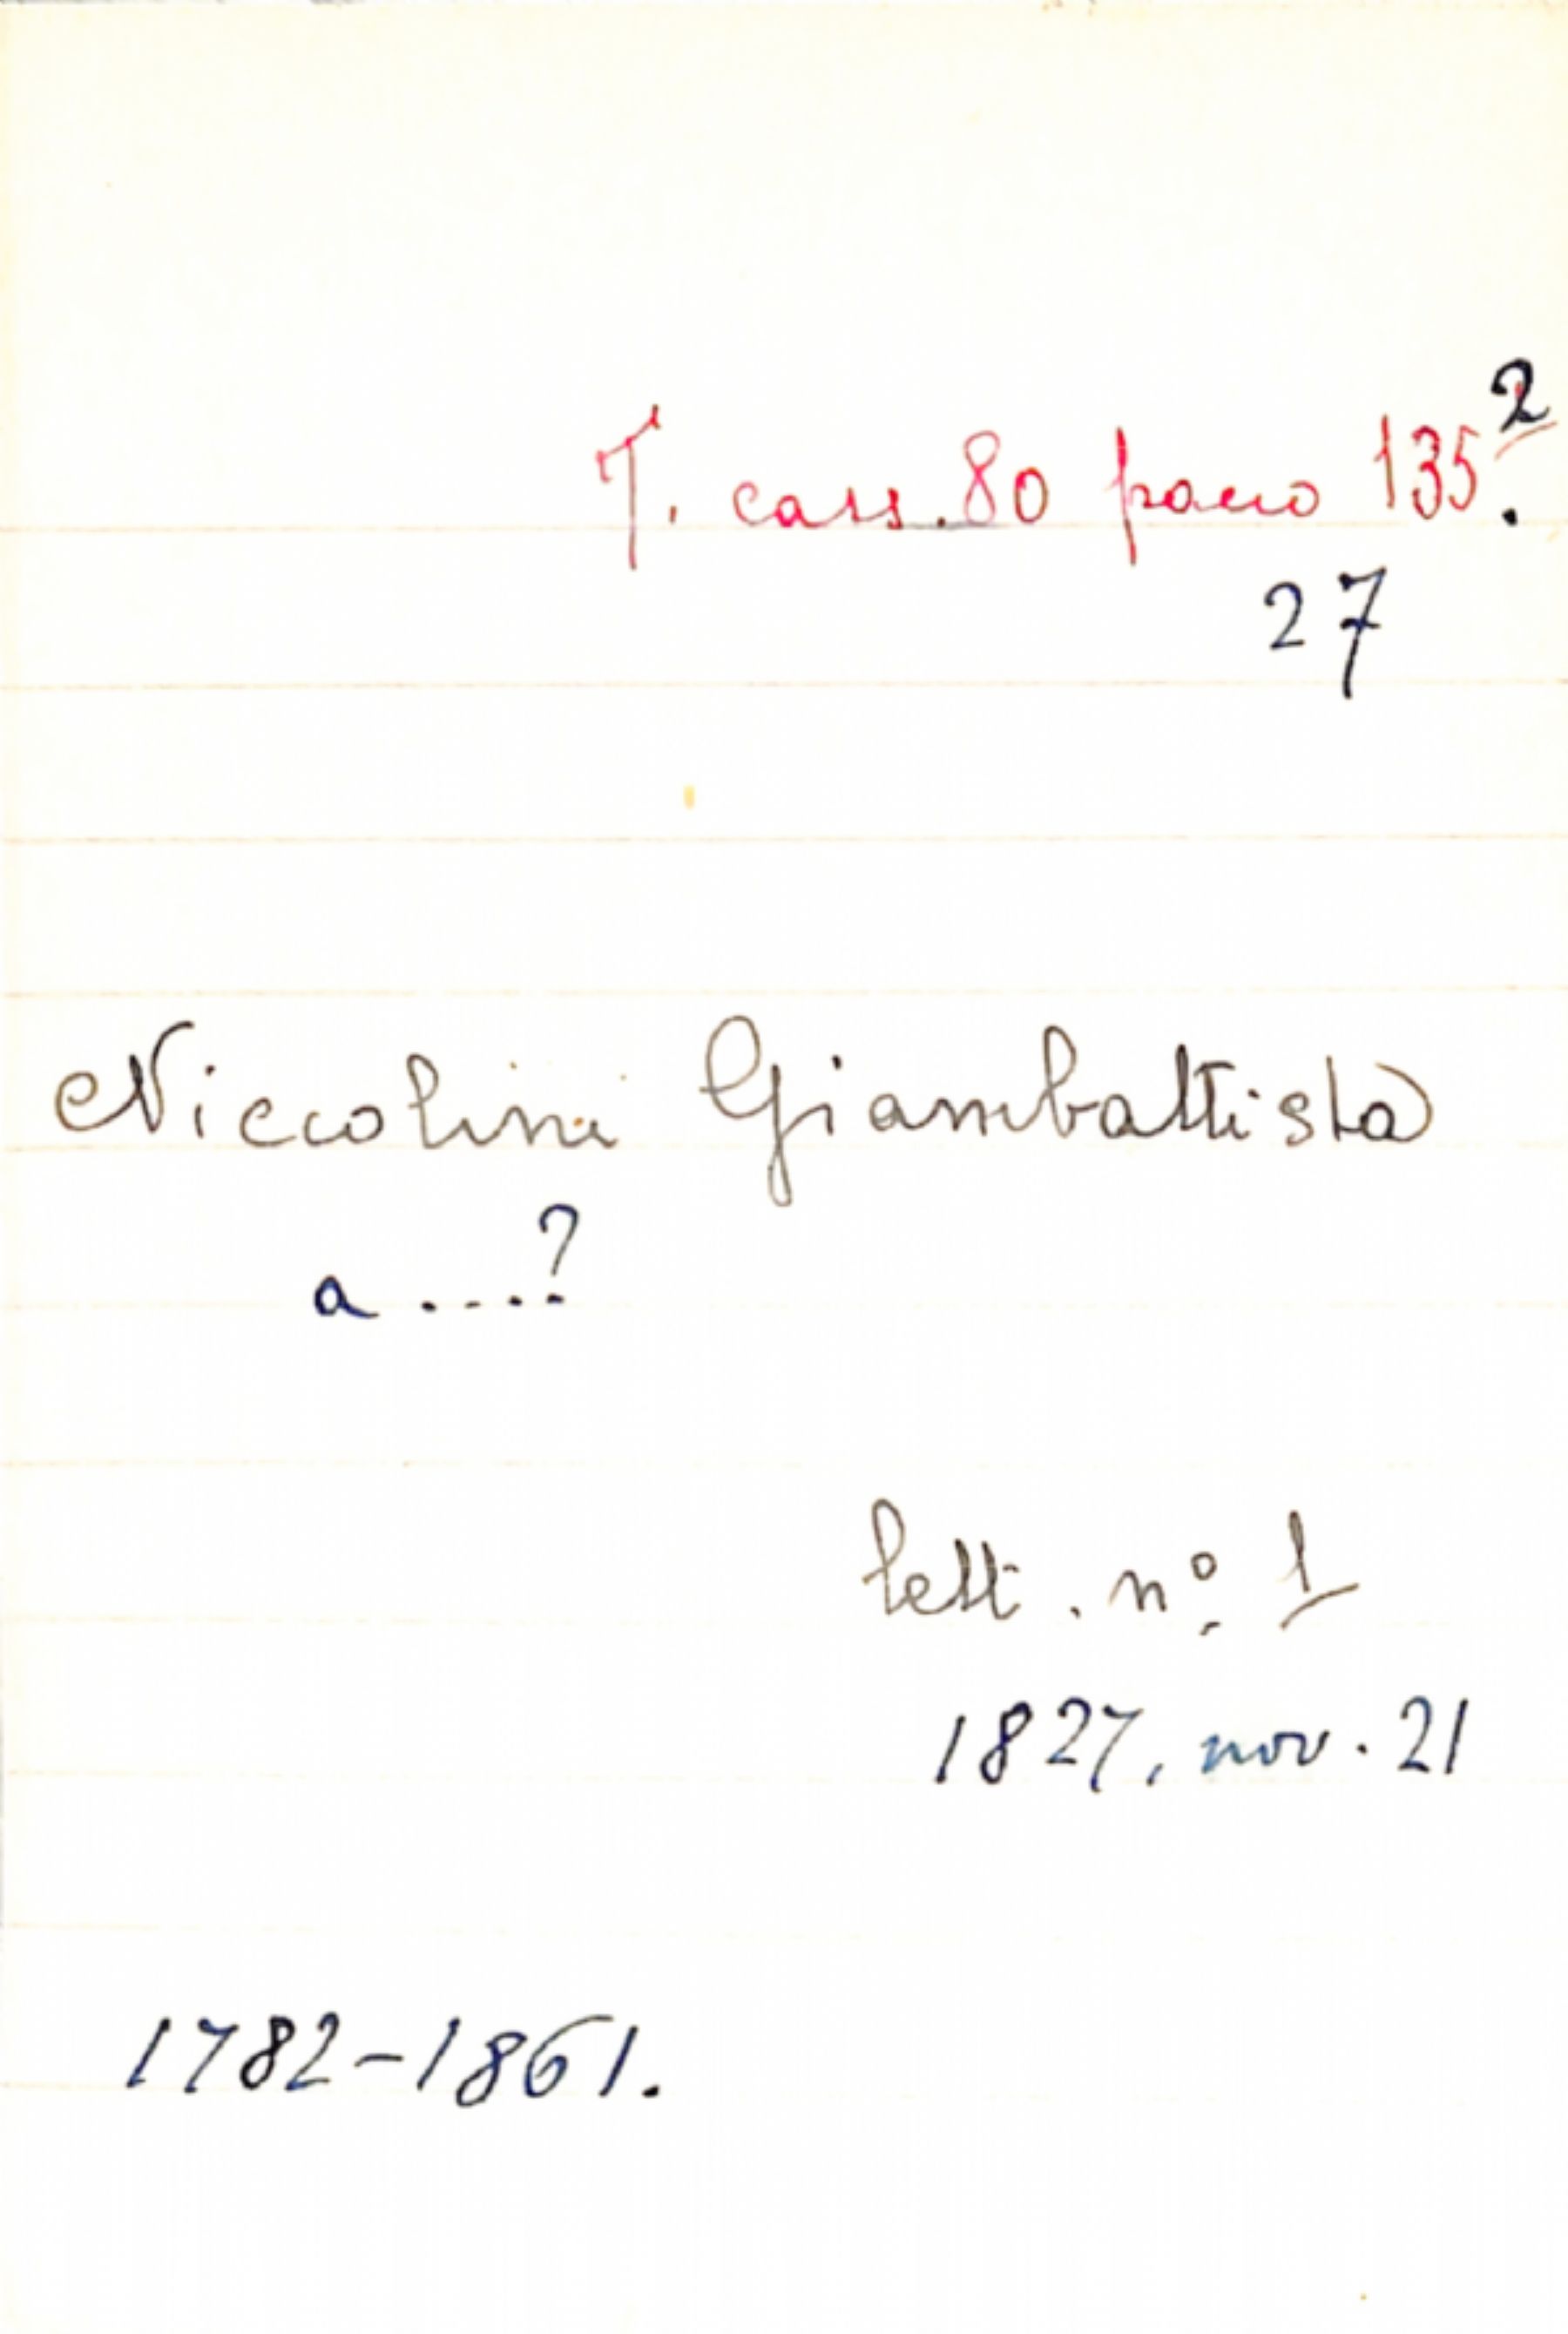 T. cass. 80 pacco 135.2
27
Niccolini Giambattista
a ....?
lett. nº 1
1827, nov. 21
1782-1861.